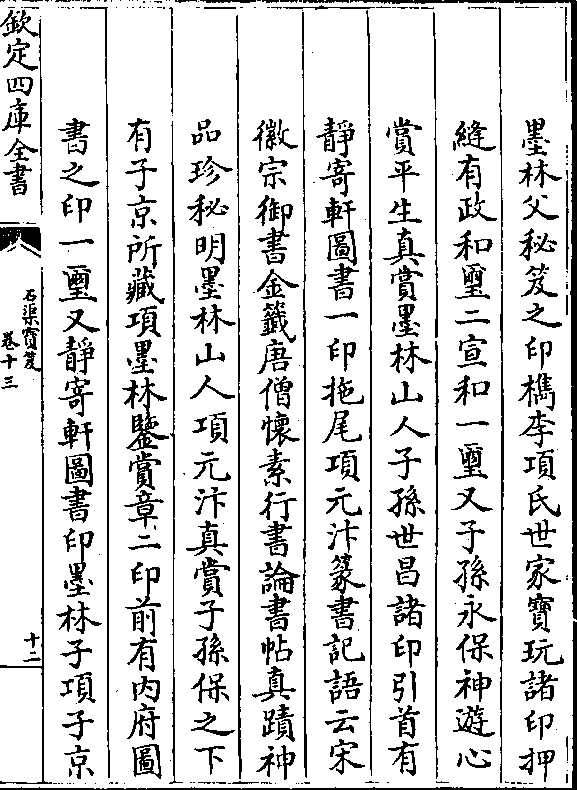 墨林父秘笈之印檇李項氏世家寶玩諸印押
縫有政和璽二宣和一璽又子孫永保神遊心
賞平生真賞墨林山人子孫世昌諸印引首有
靜寄軒圖書一印拖尾項元汴篆書記語云宋
徽宗御書金籤唐僧懷素行書論書帖真蹟神
品珍秘明墨林山人項元汴真賞子孫保之下
有子京所藏項墨林鑒賞章二印前有内府圖
書之印一璽又靜寄軒圖書印墨林子項子京
欽定四庫全書
石渠寳笈
卷十三
十二